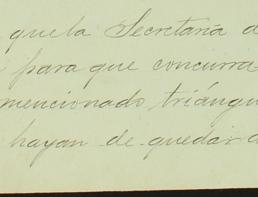 que la Secretaría d
para que concurra
mencionado triángu
hayan de quedar a